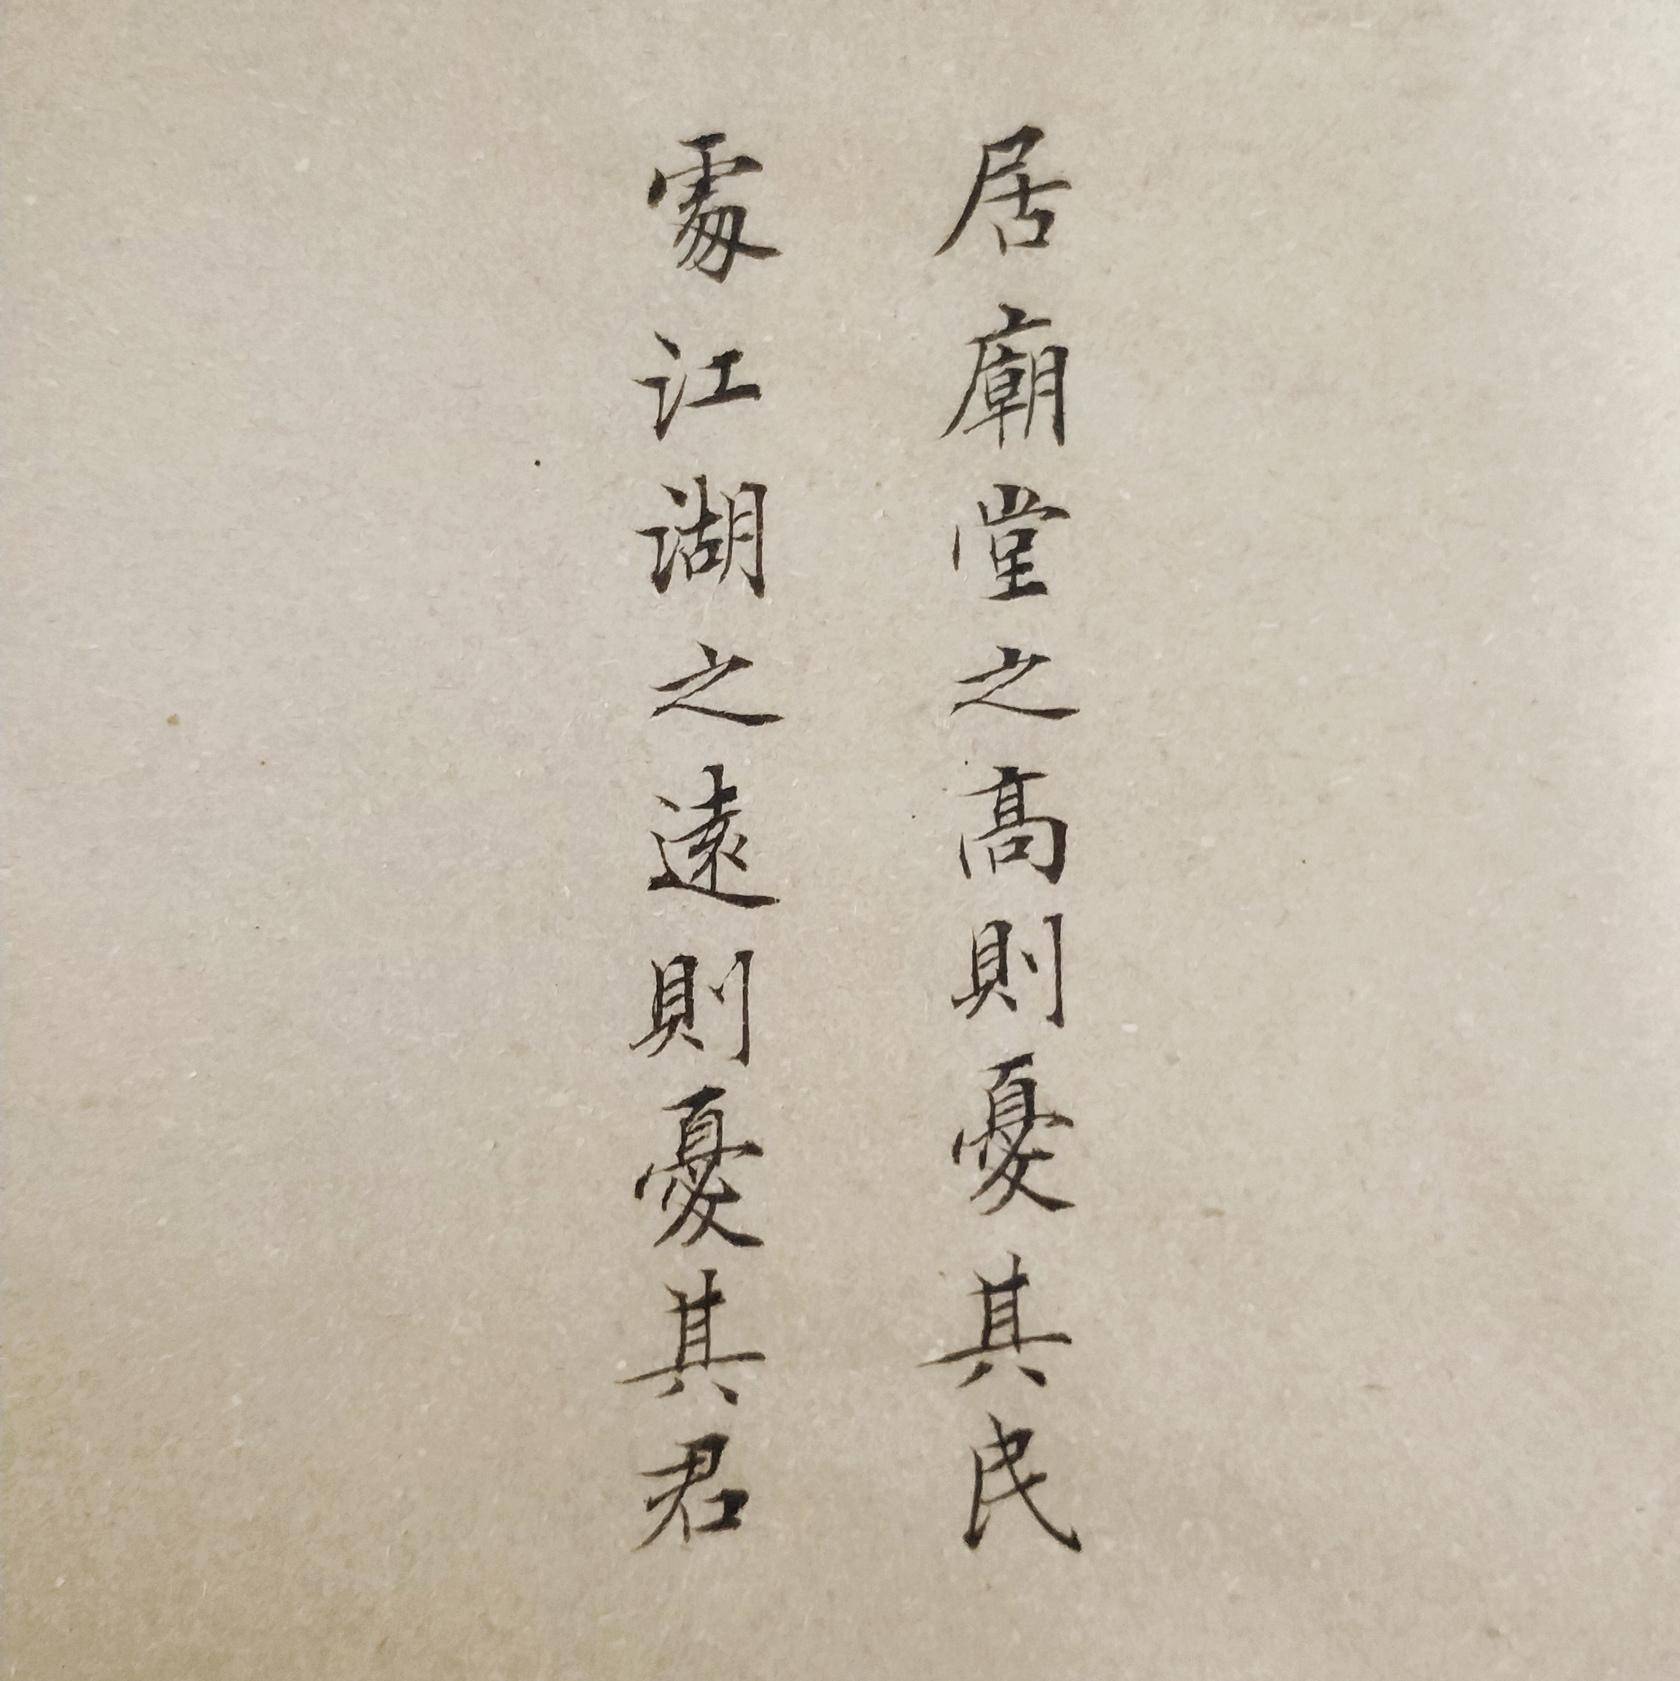 居廟堂之高則憂其民
處江湖之遠則憂其君